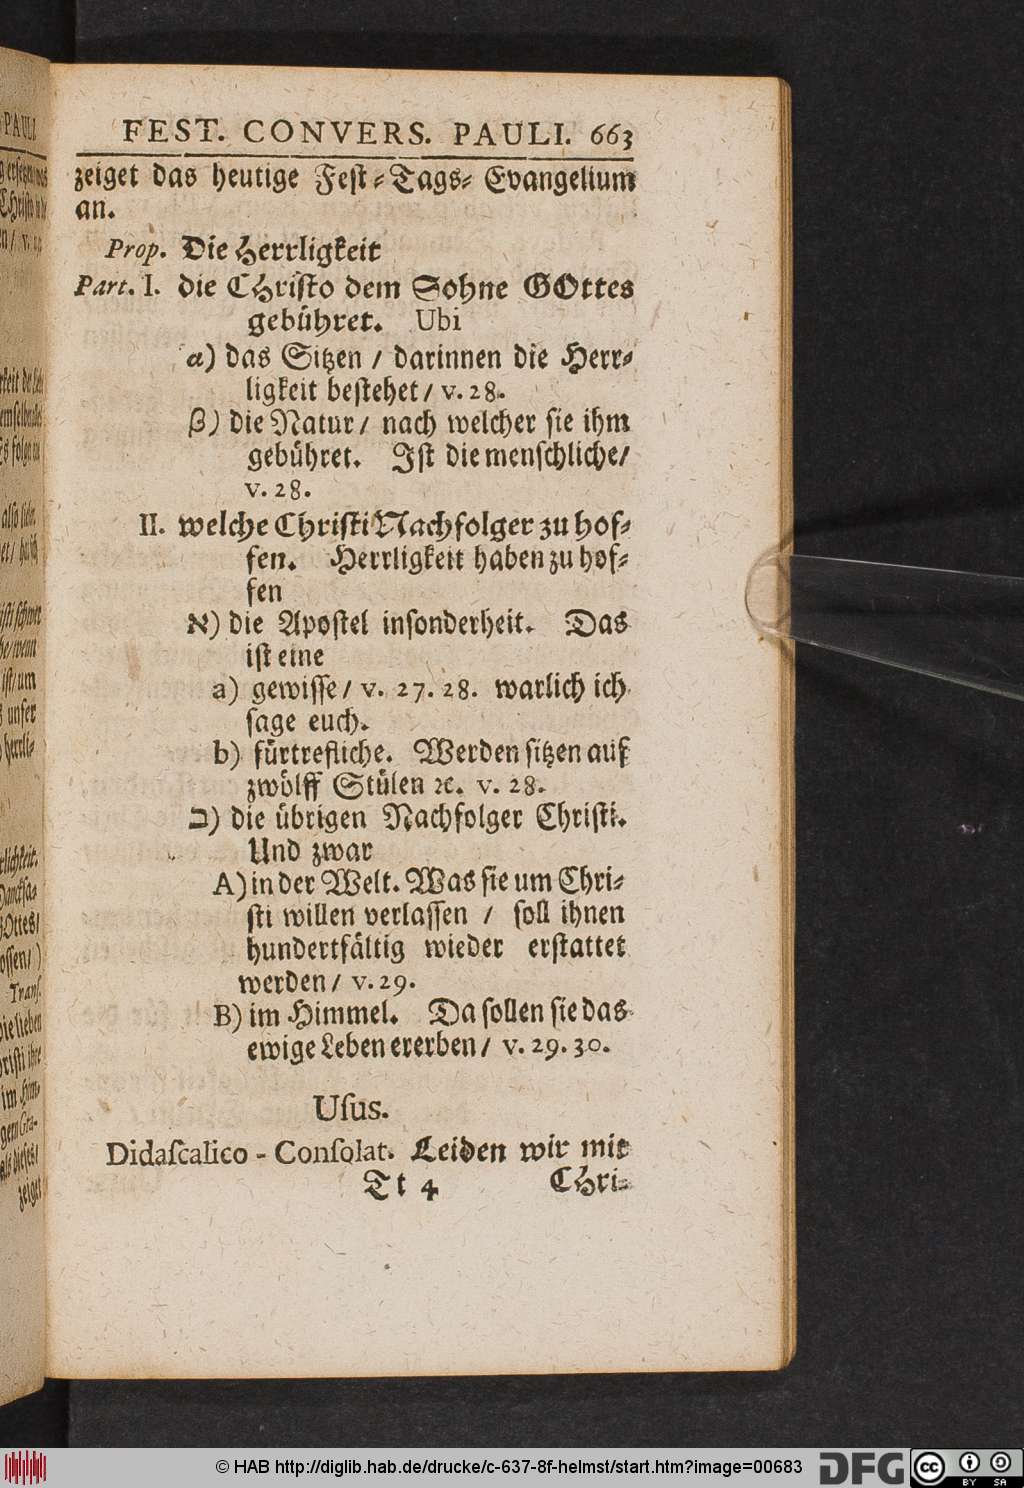 FEST. CONVERS. PAULI. 663
zeiget das heutige Fest-Tags-Evangelium
an.
Prop. Die Herrligkeit
Part. I. die CHristo dem Sohne GOttes
gebühret. Ubi
α) das Sitzen / darinnen die Herr-
ligkeit bestehet / v. 28.
β) die Natur / nach welcher sie ihm
gebühret. Ist die menschliche /
v. 28.
II. welche Christi Nachfolger zu hof-
fen. Herrligkeit haben zu hof-
fen
א) die Apostel insonderheit. Das
ist eine
a) gewisse / v. 27. 28. warlich ich
sage euch.
b) fürtrefliche. Werden sitzen auf
zwölff Stülen ꝛc. v. 28.
ב) die übrigen Nachfolger Christi.
Und zwar
A) in der Welt. Was sie um Chri-
sti willen verlassen / soll ihnen
hundertfältig wieder erstattet
werden / v. 29.
B) im Himmel. Da sollen sie das
ewige Leben ererben / v. 29. 30.
Uſus.
Didaſcalico - Conſolat. Leiden wir mit
Tt 4 CHri-
© HAB http://diglib.hab.de/drucke/c-637-8f-helmst/start.htm?image=00683
DFG
cc BY SA